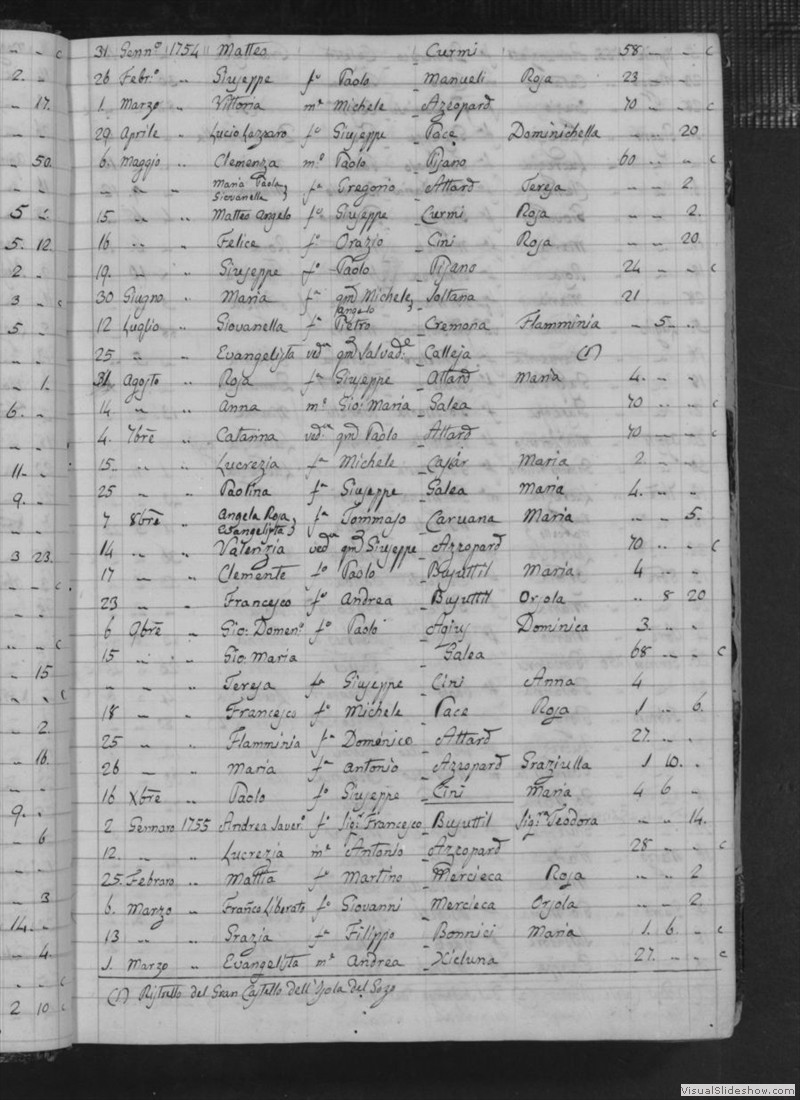 - - c
31. Gennº 1754 Matteo Curmi 58 - - c
2. - 26 Febrº " Giuseppe fº Paolo Manueli Rosa 23 - -
- 17. 1. Marzo " Vittoria mª Michele Azzopard 70 - - c
- - 29. Aprile " Lucio Lazzaro fº Giuseppe Pace Dominichella - - 20.
- 50. 6. Maggio " Clemenza mª Paolo Pisano 60 - - c
- - " " " Maria Paola, Giovanella fª Gregorio Attard Teresa - - 2
5 2. 15. " " Matteo Angelo fº Giuseppe Curmi Rosa - - 2.
5. 12. 16 " " Felice fº Orazio Cini Rosa - - 20.
2 . 19. " " Giuseppe fº Paolo Pisano 24 - - c
3 - c 30 Giugno " Maria fª qm Michelang.lo Soltana 21
5 - 12 Luglio " Giovanella fª Pietro Cremona Flamminia - 5. -
- - 25. " " Evangelista vedª qm Salvadre Calleja (1)
- 1. 31. Agosto " Rosa fª Giuseppe Attard Maria 4. - -
6. - 14 " " Anna mª Gio: Maria Galea 70 - - c
- - 4. 7bre " Catarina vedª qm Paolo Attard 70 - - c
15. " " Lucrezia fª Michele Cassar Maria 2 - -
11. - 25 " " Paolina fª Giuseppe Galea Maria 4. - -
9. - 7 8bre " Angela Rosa, Evangelista fª Tommaso Caruana Maria - - 5.
3 23. 14 " " Valenzia vedª qm Giuseppe Azzopard 70 - - c
- - c 17 " " Clemente fº Paolo Busuttil Maria 4 - -
- - 23 " " Francesco fº Andrea Busuttil Orsola " 8 20
- - 6 9bre " Gio: Domenº fº Paolo Agius Dominica 3. - -
- - c 15 " " Gio: Maria Galea 68 - - c
- 15 " " " Teresa fª Giuseppe Cini Anna 4
- - c 18 " " Francesco fº Michele Pace Rosa 1 - 6.
- 2. 25 " " Flamminia fª Domenico Attard 27. - -
- 16. 26 " " Maria fª Antonio Azzopard Graziulla 1 10. -
- - 16 Xbre " Paolo fº Giuseppe Cini Maria 4 6 -
9. - 2 Gennaro 1755 Andrea Saverº fº Sigr Francesco Busuttil Sigra Teodora - - 14.
- 6 12. " " Lucrezia mª Antonio Azzopard 28 - - c
- - 25. Febraro " Mattia fº Martino Mercieca Rosa - - 2
- 3 6. Marzo " Franco Liberato fº Giovanni Mercieca Orsola - - 2.
14. - 13 " " Grazia fª Filippo Bonnici Maria 1. 6 - c
- 4. 1. Marzo " Evangelista mª Andrea Xicluna 27. - - c
- - c (1) Ristretto del Gran Castello dell'Isola del Gozo
2 10 c
VisualSlideshow.com